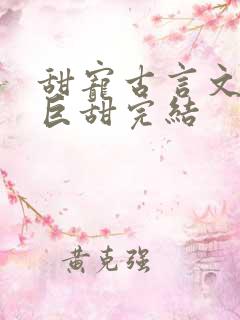 甜寵古言文
巨甜完結
黄克强